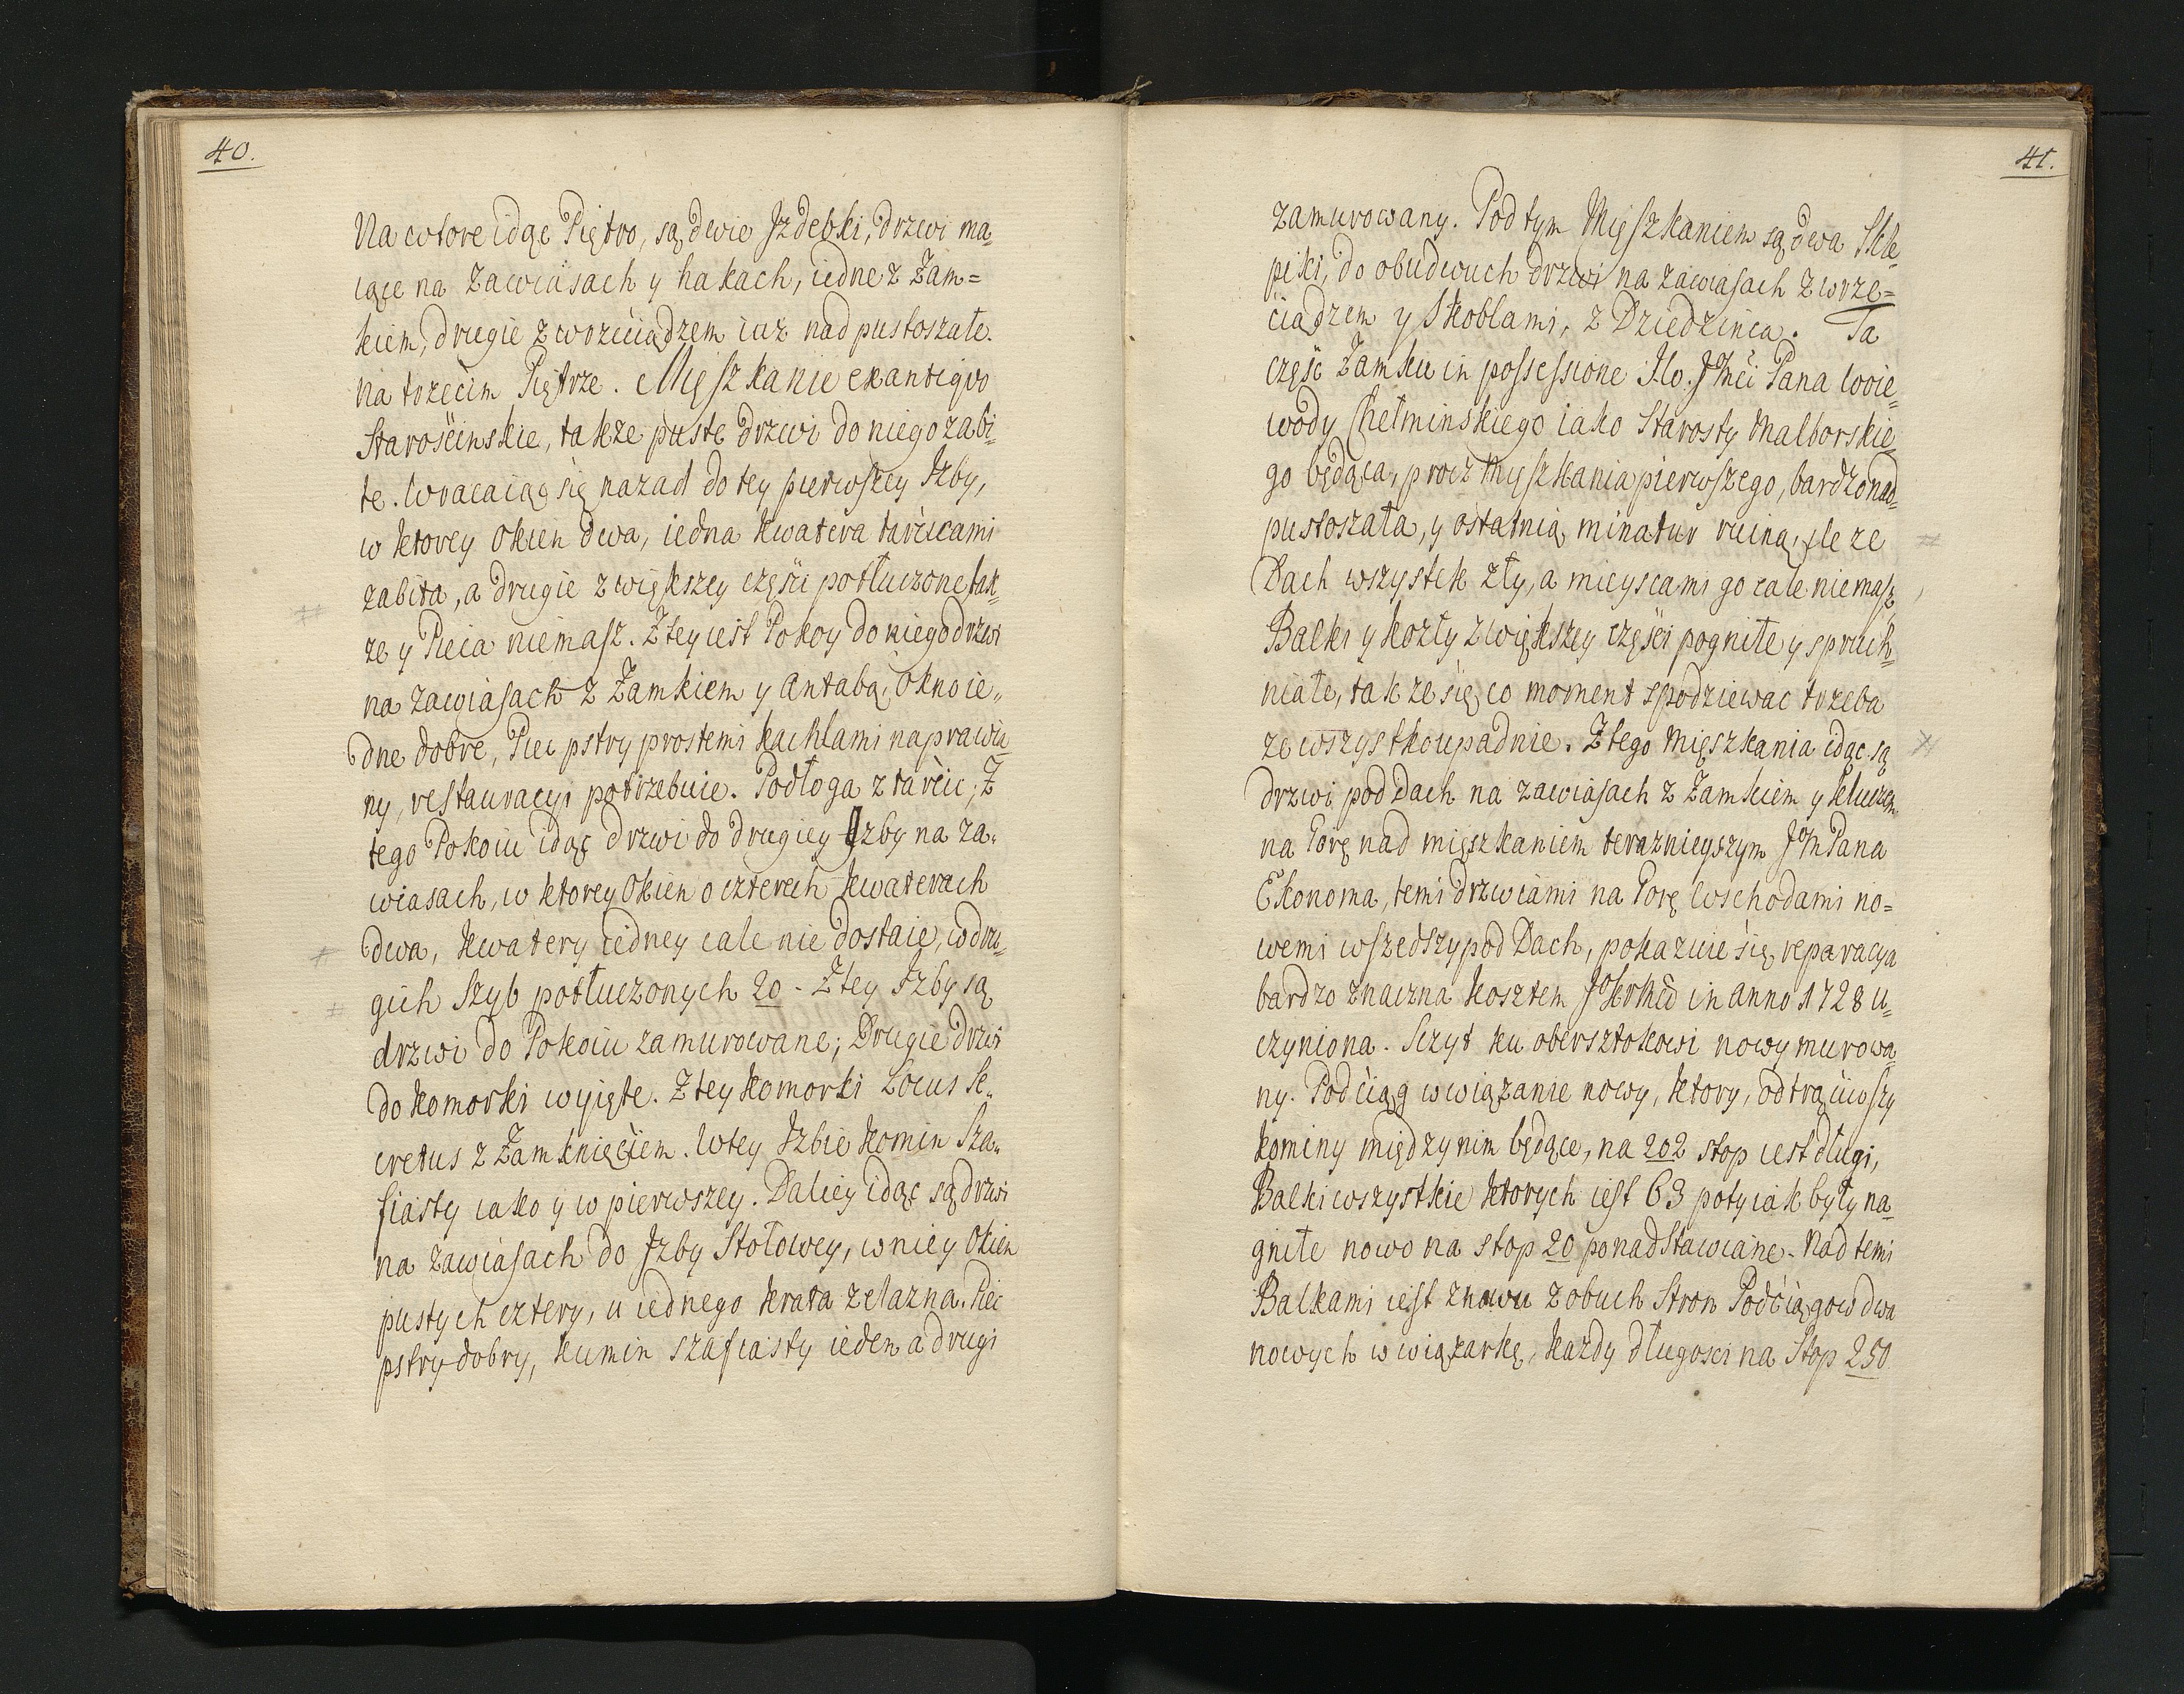 40.
Na wtore idąc Piętro, są dwie Jzdebki, drzwi ma„
iące na zawiasach y hakach, iedne z Zam=
kiem, drugie z wrzeciądzem iuż nadpustoszałe.
Na trzecim Piętrze. Mięszkanie ex antiqvo
Starościnskie, także puste drzwi do niego zabi„
te. Wracaiąc się nazad do tey pierwszey Jzby,
w ktorey Okien dwa, iedna kwatera tarcicami
zabita, a drugie z większey części potłuczone tak„
ze y Pieca niemasz. Z tey iest Pokoy do niego drzwi
na zawiasach z Zamkiem y antabą, Okno ie„
dne dobre, Piec pstry prostemi kachlami naprawio„
ny, restauracyi potrzebuie. Podłoga z tarcic; Z
tego Pokoiu idąc drzwi do drugiey Jzby na za„
wiasach, w ktorey Okien o czterech kwaterach
dwa, kwatery iedney cale nie dostaie, w dru„
gich Szyb potłuczonych 20 - Z tey Jzby są
drzwi do Pokoiu zamurowane; Drugie drzwi
do komorki wyięte. Z tey komorki Locus se„
cretus z Zamknięciem. W tey Jzbie komin sza„
fiasty iako y w pierwszey. Daley idąc są drzwi
na zawiasach do Jzby Stołowey, w niey Okien
pustych cztery, u iednego krata zelazna. Piec
pstry dobry, kumin szafiasty ieden a drugi
41.
zamurowany. Pod tym Mięszkaniem są dwa Skle„
piki, do obudwuch drzwi na zawiasach z wrze=
ciądzem y Skoblami, z Dziedzinca. Ta
częsc Zamku in possessione J.W. JMci Pana Woie„
wody Chełminskiego iako Starosty Malborskie„
go będąca, procz Myszkania pierwszego, bardzo nad„
pustoszała, y ostatnią minatur ruiną, ile ze
Dach wszystek zły, a mieyscami go cale niemasz,
Balki y kozły z większey części pogniłe y spruch„
niałe, tak ze się co moment spodziewac trzeba
ze wszystko upadnie. Z tego Mięszkania idąc są
drzwi pod Dach na zawiasach z Zamkiem y kluczem
na Gorę nad mięszkaniem teraznieyszym JM Pana
Ekonoma, temi drzwiami na Gorę Wschodami no=
wemi wszedszy pod Dach, pokazuie się reparacya
bardzo znaczna kosztem in anno 1728 u„
czyniona. Sczyt ku obersztokowi nowy murowa„
ny. Podciąg w wiązanie nowy, ktory, odtrąciwszy
kominy między nim będące, na 202 stop iest długi,
Balki wszystkie ktorych iest 63 poty iak były na„
gniłe nowo na stop 20 ponadstawiane - Nad temi
Balkami iest znowu z obuch Stron Podciągow dwa
nowych w wiązarkę, kazdy długosci na Stop 250